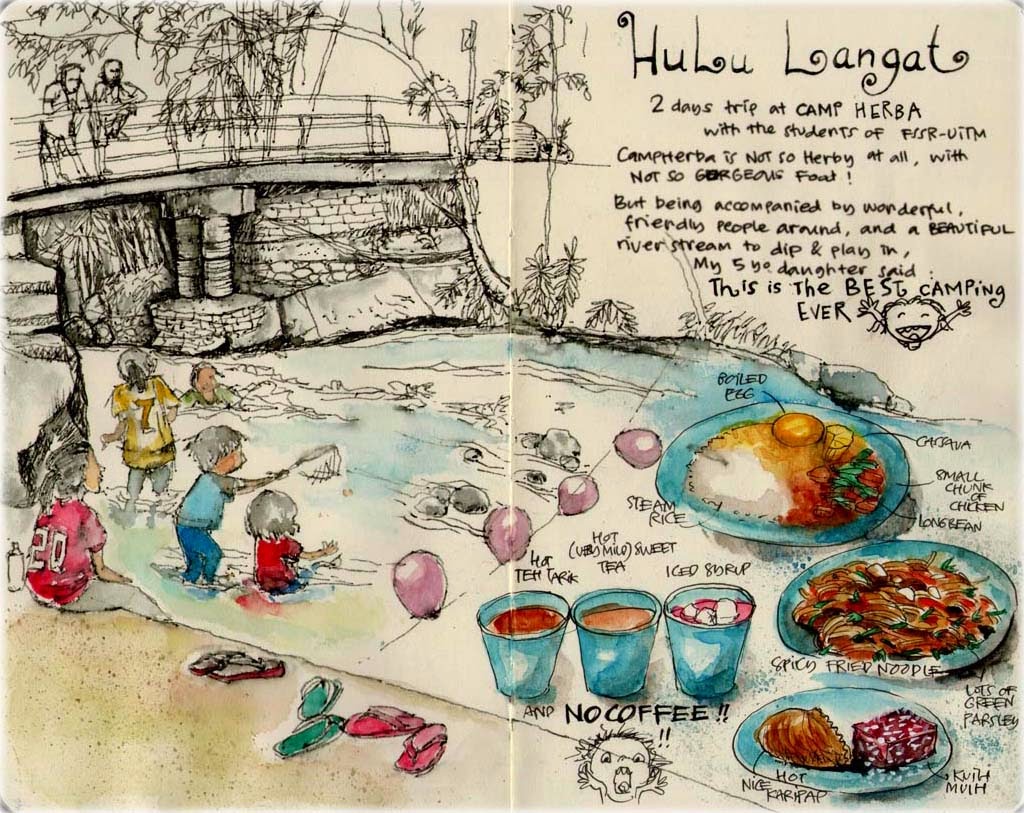 HuLu Langat
2 days trip at CAMP HERBA
with the students of FSSR-UiTM
CampHerba is NOT so Herby at all, with
NOT SO GORGEOUS Food!
But being accompanied by wonderful,
friendly people around, and a BEAUTIFUL
river stream to dip & play in,
My 5 yo daughter said :
This is The BEST CAMPing
EVER
7
20
BOILED
EGG
CASSAVA
SMALL
CHUNK
OF
CHICKEN
LONGBEAN
STEAM
RICE
HOT
TEH TARIK
HOT
(VERY MILD) SWEET
TEA
ICED SYRUP
SPICY FRIED NOODLE
LOTS OF
GREEN
PARSLEY
AND NO COFFEE!!
!!
HOT
NICE KARIPAP
KUIH
MUIH